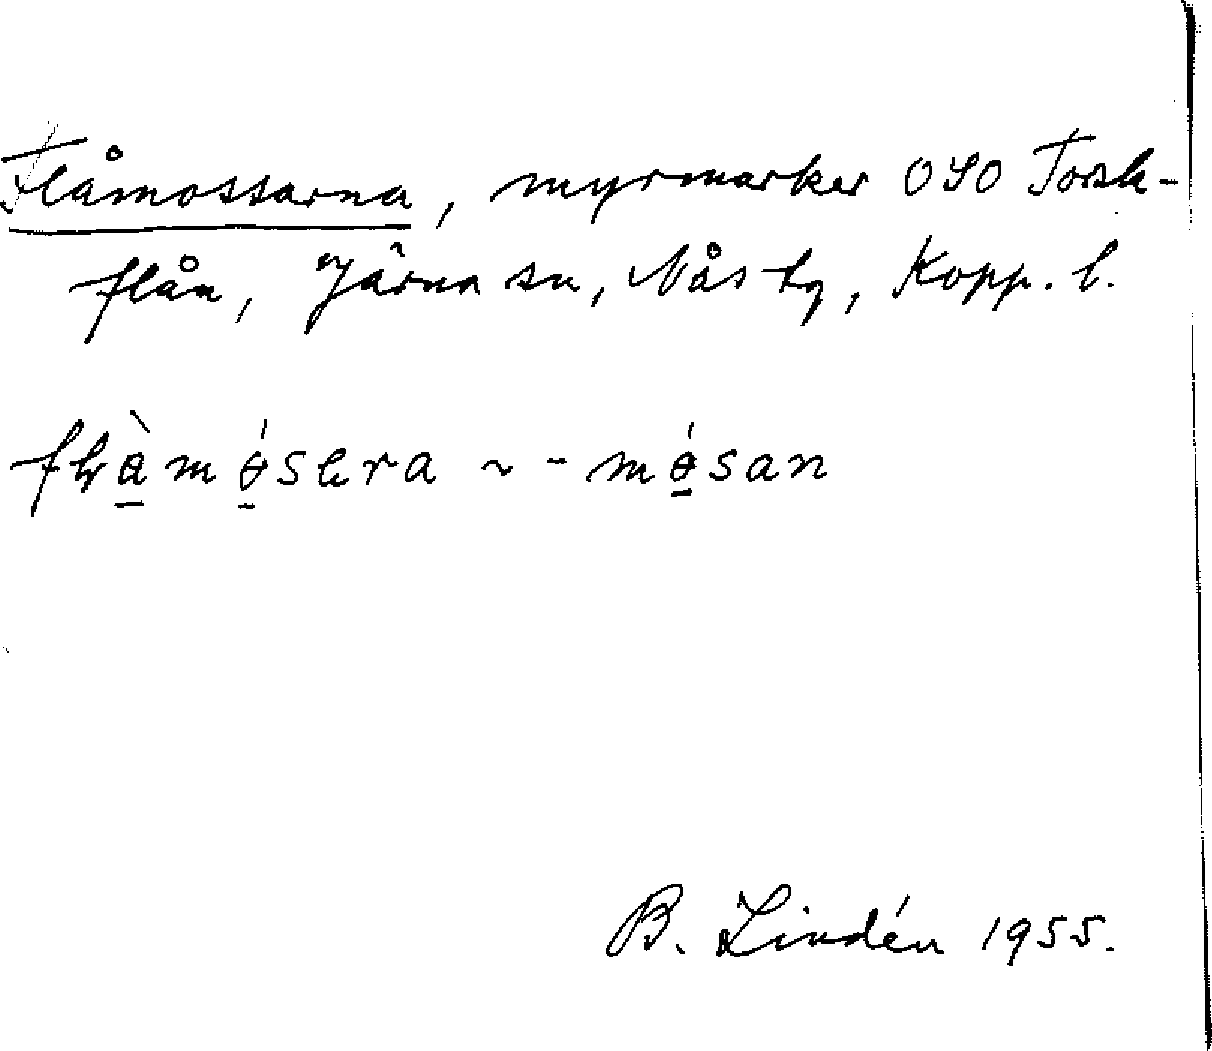 Flåmossarna, myrmarker OSO Torsk-
flån, Järna sn, Nås tg, Kopp. l.
~ -mɵ́san
B. Lindén 1955.